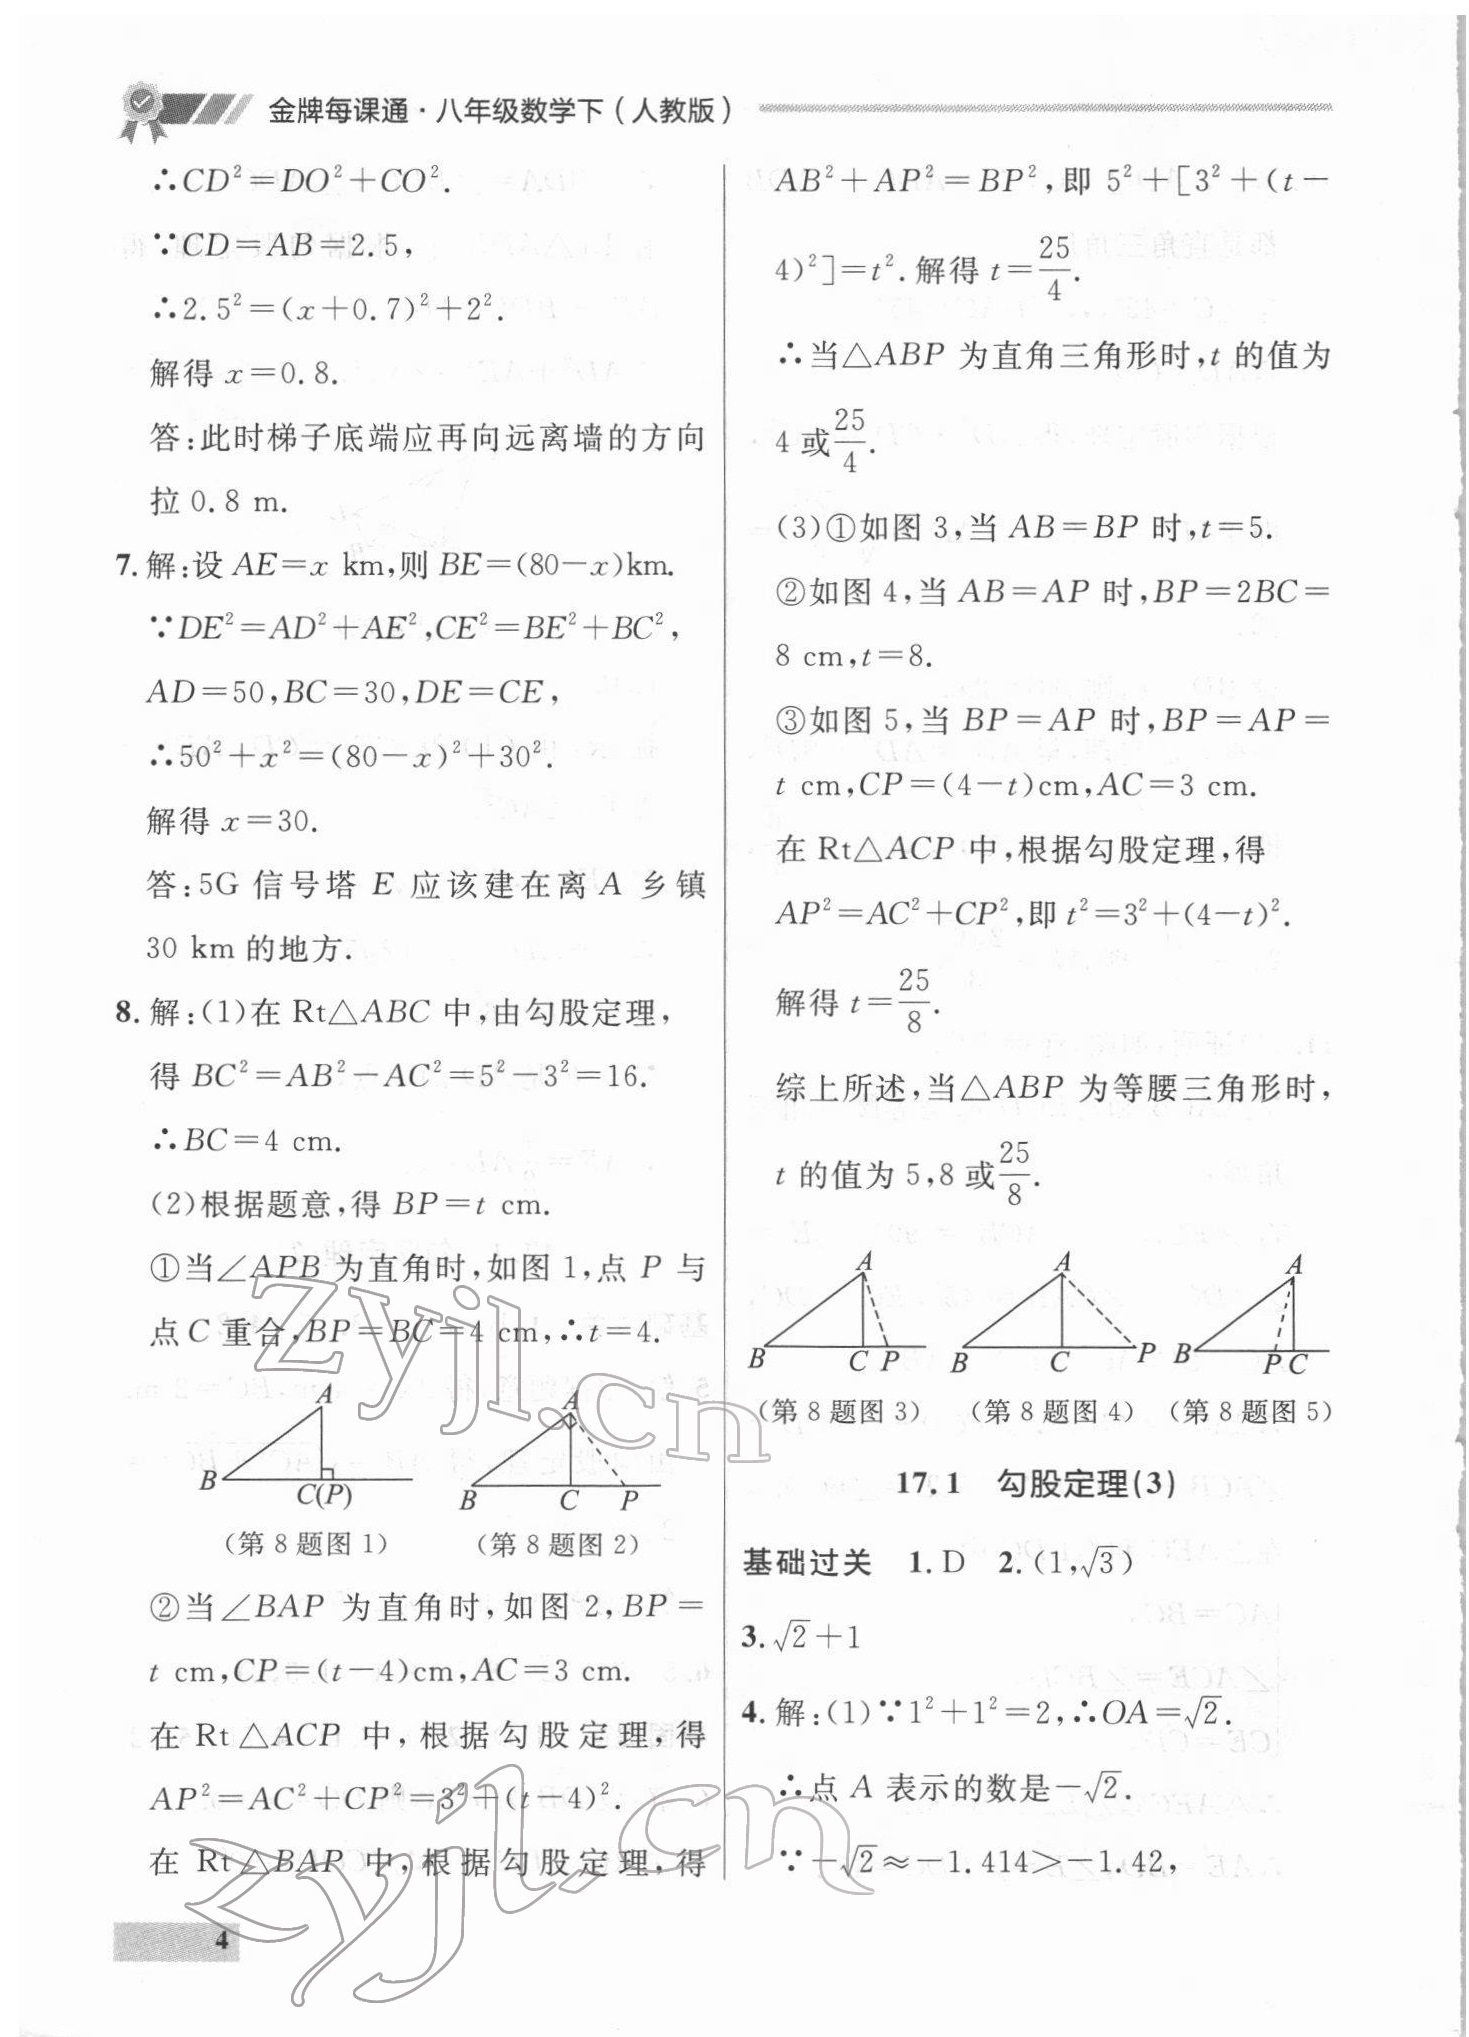 金牌每课通·八年级数学下(人教版)
∴CD²=DO²+CO².
∵CD=AB=2.5,
∴2.5²=(x+0.7)²+2².
解得 x=0.8.
答:此时梯子底端应再向远离墙的方向
拉 0.8 m.
7.解:设 AE=x km,则 BE=(80-x)km.
∵DE²=AD²+AE²,CE²=BE²+BC²,
AD=50,BC=30,DE=CE,
∴50²+x²=(80-x)²+30².
解得 x=30.
答:5G 信号塔 E 应该建在离 A 乡镇
30 km 的地方.
8.解:(1)在 Rt△ABC 中,由勾股定理,
得 BC²=AB²-AC²=5²-3²=16.
∴BC=4 cm.
(2)根据题意,得 BP=t cm.
①当∠APB 为直角时,如图 1,点 P 与
点 C 重合,BP=BC=4 cm,∴t=4.
A
B
C(P)
(第 8 题图 1)
A
B
C
P
(第 8 题图 2)
②当∠BAP 为直角时,如图 2,BP=
t cm,CP=(t-4)cm,AC=3 cm.
在 Rt△ACP 中,根据勾股定理,得
AP²=AC²+CP²=3²+(t-4)².
在 Rt△BAP 中,根据勾股定理,得
AB²+AP²=BP²,即 5²+[3²+(t-
4)²]=t².解得 t=25/4.
∴当△ABP 为直角三角形时,t 的值为
4 或25/4.
(3)①如图 3,当 AB=BP 时,t=5.
②如图 4,当 AB=AP 时,BP=2BC=
8 cm,t=8.
③如图 5,当 BP=AP 时,BP=AP=
t cm,CP=(4-t)cm,AC=3 cm.
在 Rt△ACP 中,根据勾股定理,得
AP²=AC²+CP²,即 t²=3²+(4-t)².
解得 t=25/8.
综上所述,当△ABP 为等腰三角形时,
t 的值为 5,8 或25/8.
A
B
C P
(第 8 题图 3)
A
B
C
P
(第 8 题图 4)
A
B
P C
(第 8 题图 5)
17.1 勾股定理(3)
基础过关 1.D 2.(1,√3)
3.√2+1
4.解:(1)∵1²+1²=2,∴OA=√2.
∴点 A 表示的数是-√2.
∵-√2≈-1.414>-1.42,
4
zyjl.cn
zyjl.cn